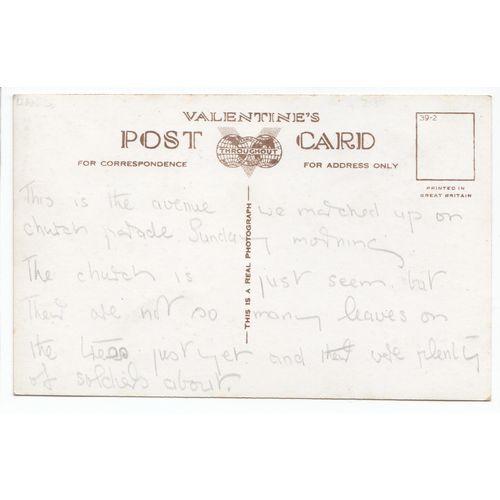 VALENTINE'S
POST CARD
THROUGHOUT
FOR CORRESPONDENCE
FOR ADDRESS ONLY
39-2
PRINTED IN
GREAT BRITAIN
THIS IS A REAL PHOTOGRAPH
This is the avenue we marched up on
church parade Sunday morning
The church is just seem, but
there are not so many leaves on
the trees just yet and plenty
of soldiers about.